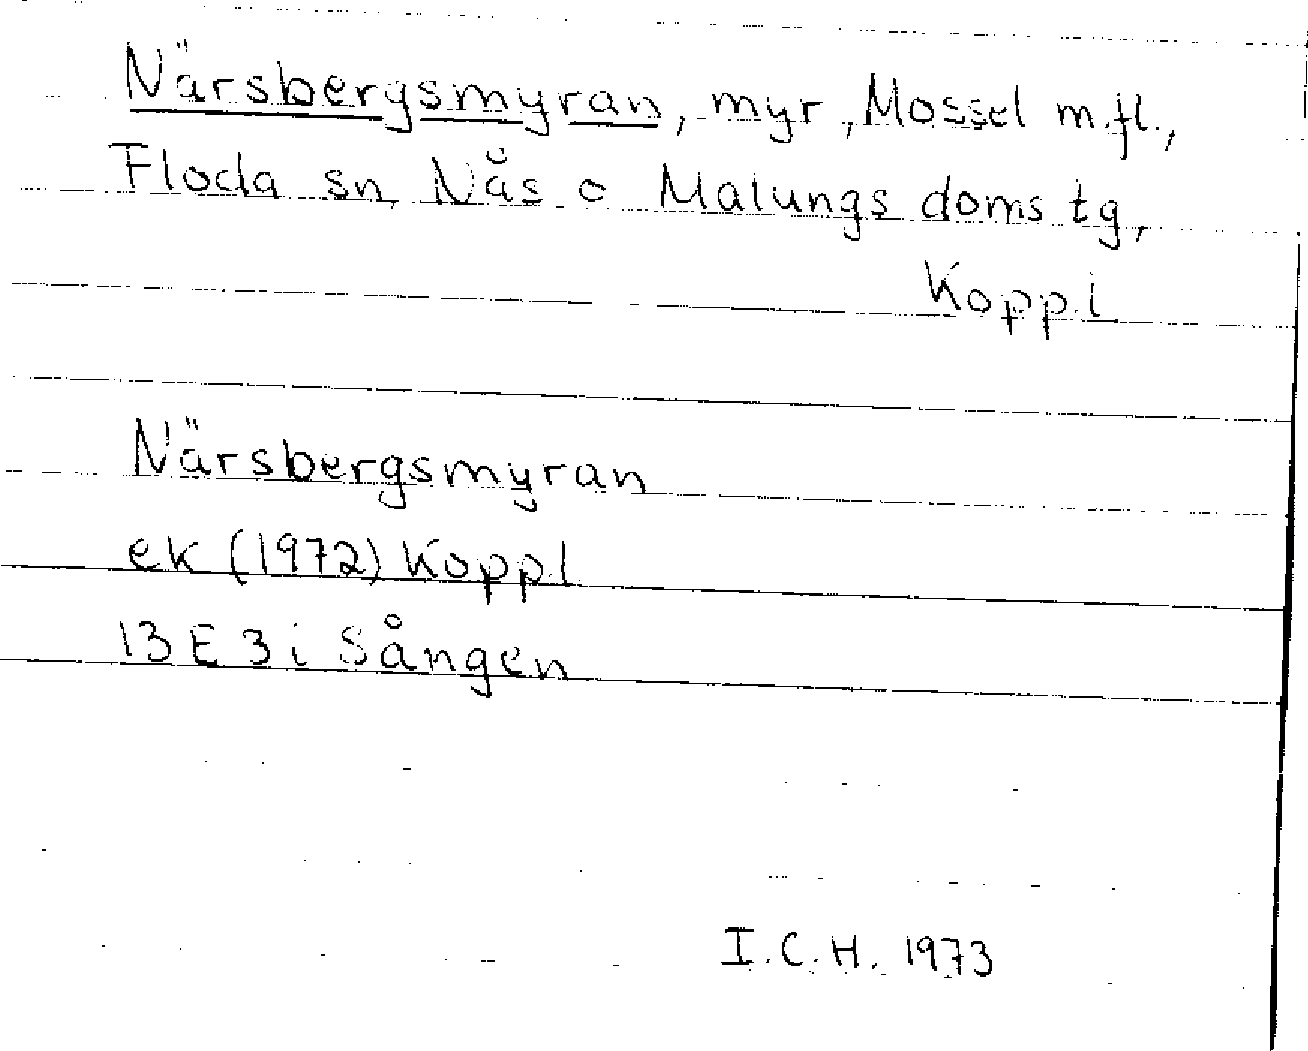 Närsbergsmyran, myr, Mossel m.fl.,
Floda sn, Nås o Malungs doms tg,
Koppl
Närsbergsmyran
ek (1972) Koppl
13 E 3 i Sången
I.C.H. 1973